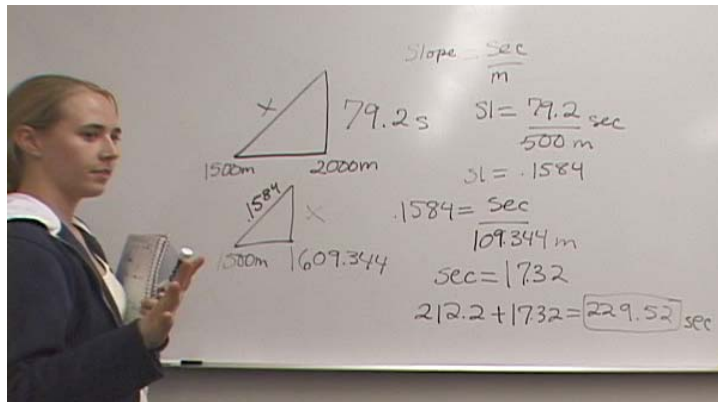 Slope = sec
m
x
79.2s
1500m
2000m
Sl = 79.2 sec
500 m
sl = .1584
.1584
x
1500m
1609.344
.1584 = sec
109.344 m
sec = 17.32
212.2 + 17.32 = 229.52 sec